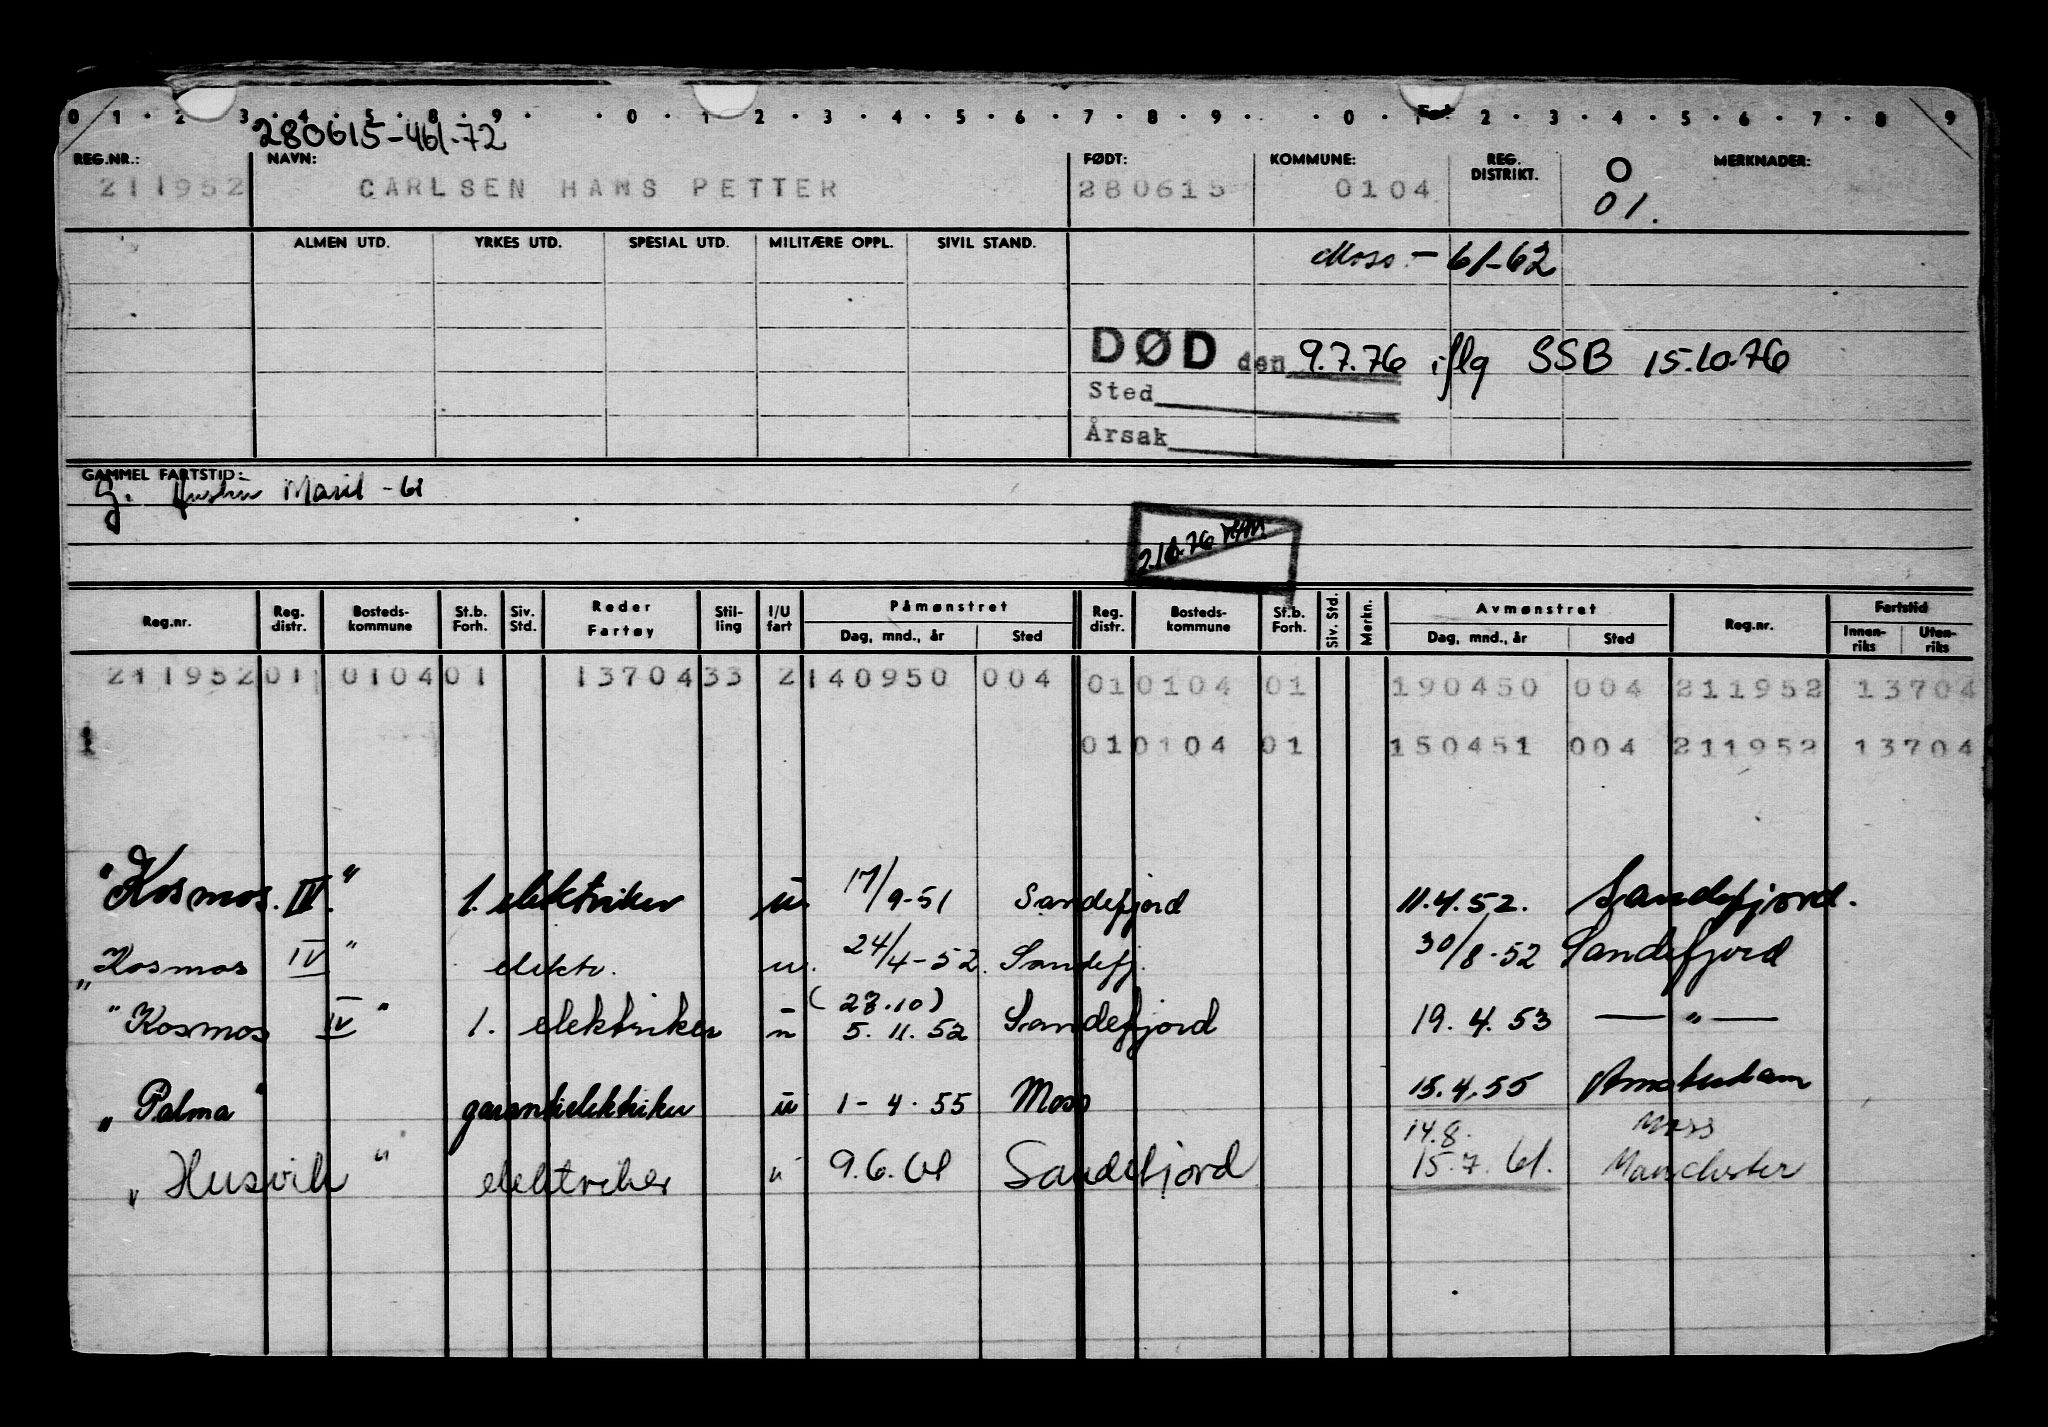 0 1 2 3 4 5 6 8 9 0 1 2 3 4 5 6 7 8 9 0 1 2 3 4 5 6 7 8 9
280615-461.72
REG.NR.: NAVN: FØDT: KOMMUNE: REG. DISTRIKT. O MERKNADER:
211952 CARLSEN HANS PETTER 280615 0104 01.
ALMEN UTD. YRKES UTD. SPESIAL UTD. MILITÆRE OPPL. SIVIL STAND.
Moss - 61-62
DØD den 9.7.76 iflg SSB 15.10.76
Sted
Årsak
GAMMEL FARTSTID:
Maril - 61
76
Reg.nr. Reg. distr. Bosteds-kommune St.b. Forh. Siv. Std. Reder Fartøy Stil-ling I/U fart Påmønstret Dag, mnd., år Sted Reg. distr. Bosteds-kommune St.b. Forh. Siv. Std. Merkn. Avmønstret Dag, mnd., år Sted Reg.nr. Fartstid Innen-riks Uten-riks
211952 01 0104 01 13704 33 2 140950 004 01 0104 01 190450 004 211952 13704
1 01 0104 01 150451 004 211952 13704
"Kosmos IV." 1. elektriker u. 17/9-51 Sandefjord 11.4.52. Sandefjord.
"Kosmos IV" elektr. u. 24/4-52. Sandefj. 30/8-52 Sandefjord
"Kosmos IV" 1. elektriker u (27.10) 5.11.52 Sandefjord 19.4.53 — " —
"Palma" garantielektriker u 1-4.55 Moss 15.4.55 Amsterdam
14.8. Moss
"Husvik" elektriker u 9.6.61 Sandefjord 15.7.61. Manchester